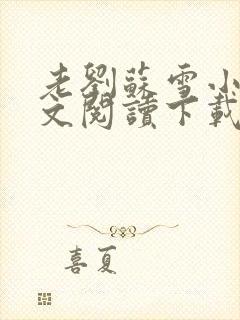 老劉蘇雪小
文閱讀下載
喜夏